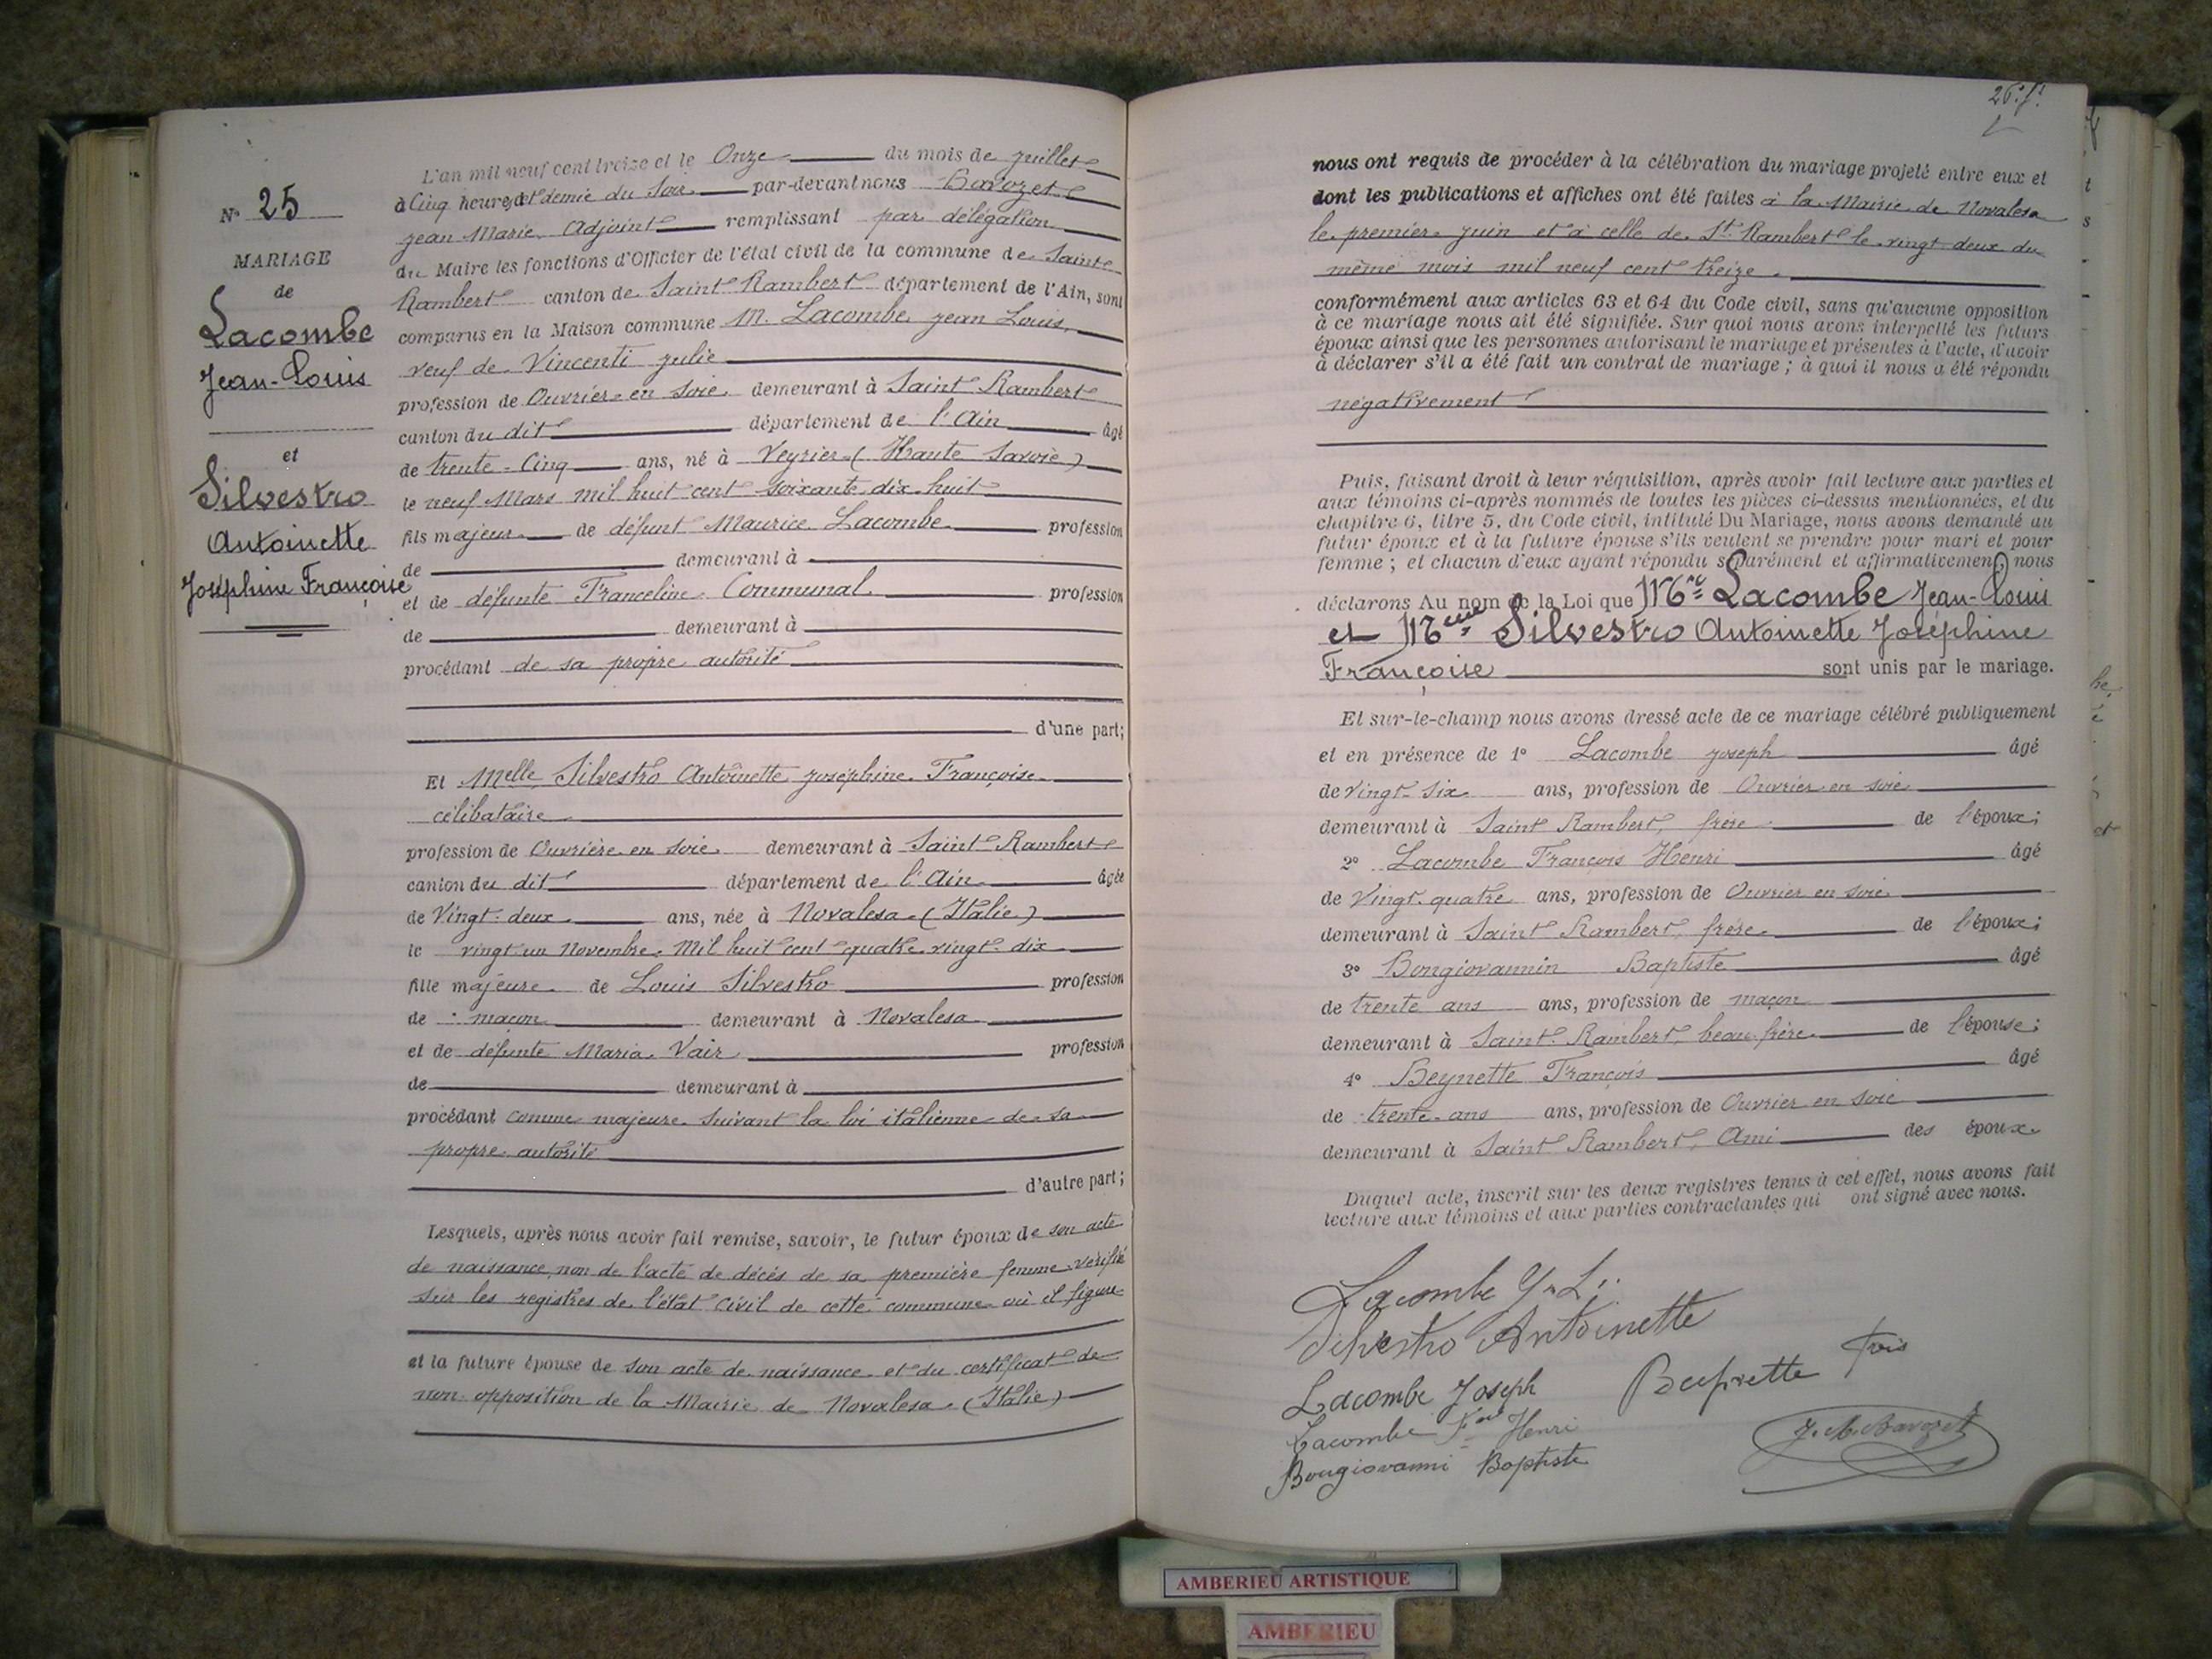 N° 25
MARIAGE
de
Lacombe
Jean-Louis
et
Silvestro
Antoinette
Joséphine Françoise
L'an mil neuf cent treize et le Onze du mois de juillet
à Cinq heures et demie du soir par-devant nous Bavozet
jean Marie Adjoint remplissant par délégation
du Maire les fonctions d'Officier de l'état civil de la commune de Saint
Rambert canton de Saint Rambert département de l'Ain, sont
comparus en la Maison commune M. Lacombe jean Louis,
veuf de Vincenti julie
profession de Ouvrier en soie demeurant à Saint Rambert
canton du dit département de l'Ain âgé
de trente-Cinq ans, né à Veyrier (Haute Savoie)
le neuf Mars mil huit cent soixante dix huit
fils majeur de défunt Maurice Lacombe profession
de demeurant à
et de défunte Franceline Communal profession
de demeurant à
procédant de sa propre autorité
d'une part;
Et Melle Silvestro Antoinette joséphine Françoise
célibataire
profession de Ouvrière en soie demeurant à Saint Rambert
canton du dit département de l'Ain âgée
de Vingt-deux ans, née à Novalesa (Italie)
le vingt un Novembre Mil huit cent quatre vingt dix
fille majeure de Louis Silvestro profession
de maçon demeurant à Novalesa
et de défunte Maria Vair profession
de demeurant à
procédant comme majeure suivant la loi italienne de sa
propre autorité
d'autre part;
Lesquels, après nous avoir fait remise, savoir, le futur époux de son acte
de naissance, non de l'acte de décès de sa première femme vérifié
sur les registres de l'état civil de cette commune où il figure
et la future épouse de son acte de naissance et du certificat de
non opposition de la Mairie de Novalesa (Italie)
26. f.
nous ont requis de procéder à la célébration du mariage projeté entre eux et
dont les publications et affiches ont été faites à la Mairie de Novalesa
le premier juin et à celle de St Rambert le vingt deux du
même mois mil neuf cent treize.
conformément aux articles 63 et 64 du Code civil, sans qu'aucune opposition
à ce mariage nous ait été signifiée. Sur quoi nous avons interpellé les futurs
époux ainsi que les personnes autorisant le mariage et présentes à l'acte, d'avoir
à déclarer s'il a été fait un contrat de mariage ; à quoi il nous a été répondu
négativement
Puis, faisant droit à leur réquisition, après avoir fait lecture aux parties et
aux témoins ci-après nommés de toutes les pièces ci-dessus mentionnées, et du
chapitre 6, titre 5, du Code civil, intitulé Du Mariage, nous avons demandé au
futur époux et à la future épouse s'ils veulent se prendre pour mari et pour
femme ; et chacun d'eux ayant répondu séparément et affirmativement nous
déclarons Au nom de la Loi que Mr Lacombe Jean-Louis
et Melle Silvestro Antoinette Joséphine
Françoise sont unis par le mariage.
Et sur-le-champ nous avons dressé acte de ce mariage célébré publiquement
et en présence de 1° Lacombe joseph âgé
de Vingt-six ans, profession de Ouvrier en soie
demeurant à Saint Rambert, frère de l'époux;
2° Lacombe François Henri âgé
de Vingt-quatre ans, profession de Ouvrier en soie
demeurant à Saint Rambert, frère de l'époux;
3° Bongiovannin Baptiste âgé
de trente ans ans, profession de maçon
demeurant à Saint-Rambert, beau frère de l'épouse;
4° Beynette François âgé
de trente ans ans, profession de Ouvrier en soie
demeurant à Saint Rambert, Ami des époux
Duquel acte, inscrit sur les deux registres tenus à cet effet, nous avons fait
lecture aux témoins et aux parties contractantes qui ont signé avec nous.
Lacombe J. L.
Silvestro Antoinette
Lacombe Joseph
fois
Lacombe Henri
Bongiovanni Baptiste
J. M. Bavozet
AMBERIEU ARTISTIQUE
AMBERIEU